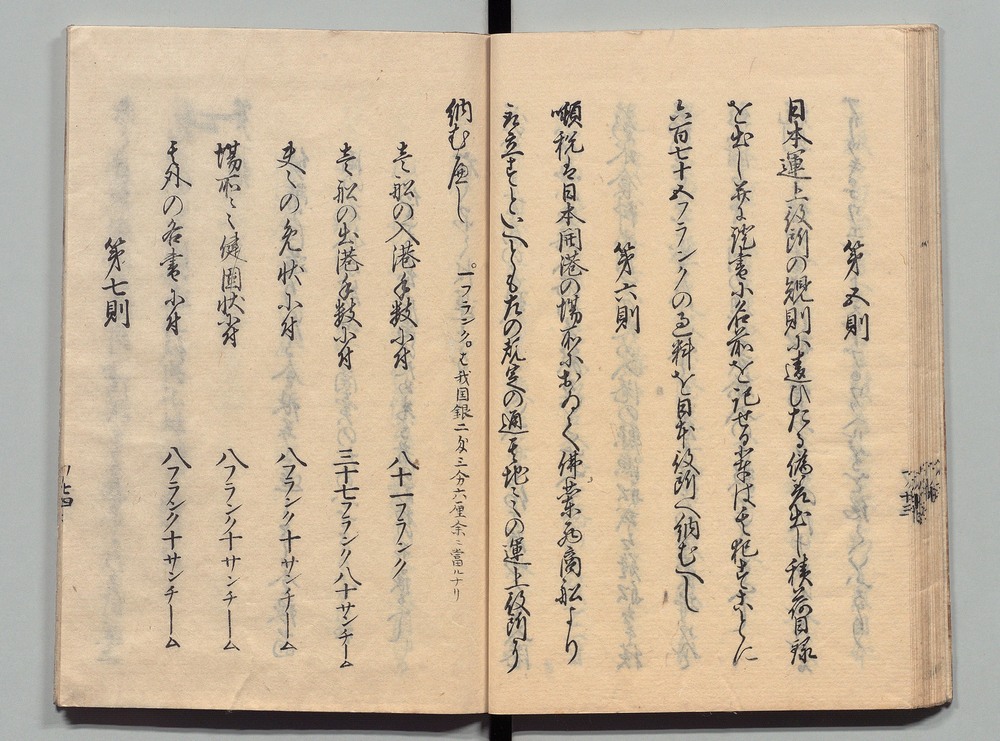 第五則
日本運上役所の規則に違ひたる偽荷出し積荷目録
を出し并に證書に名前を記せる者は其犯すことに
六百七十五フランクの過料を日本役所へ納むへし
第六則
噸税は日本開港の場所において佛蘭西商船より
取立すといへとも左の規定の通其地々の運上役所へ
納む厘し
一フランク。は我国銀二匁三分六厘余ニ當ルナリ
壱船の入港手数に付 八十一フランク
壱船の出港手数に付 三十七フランク八十サンチーム
夫々の免状に付 八フランク十サンチーム
場所之健固状に付 八フランク十サンチーム
其外の各書に付 八フランク十サンチーム
第七則